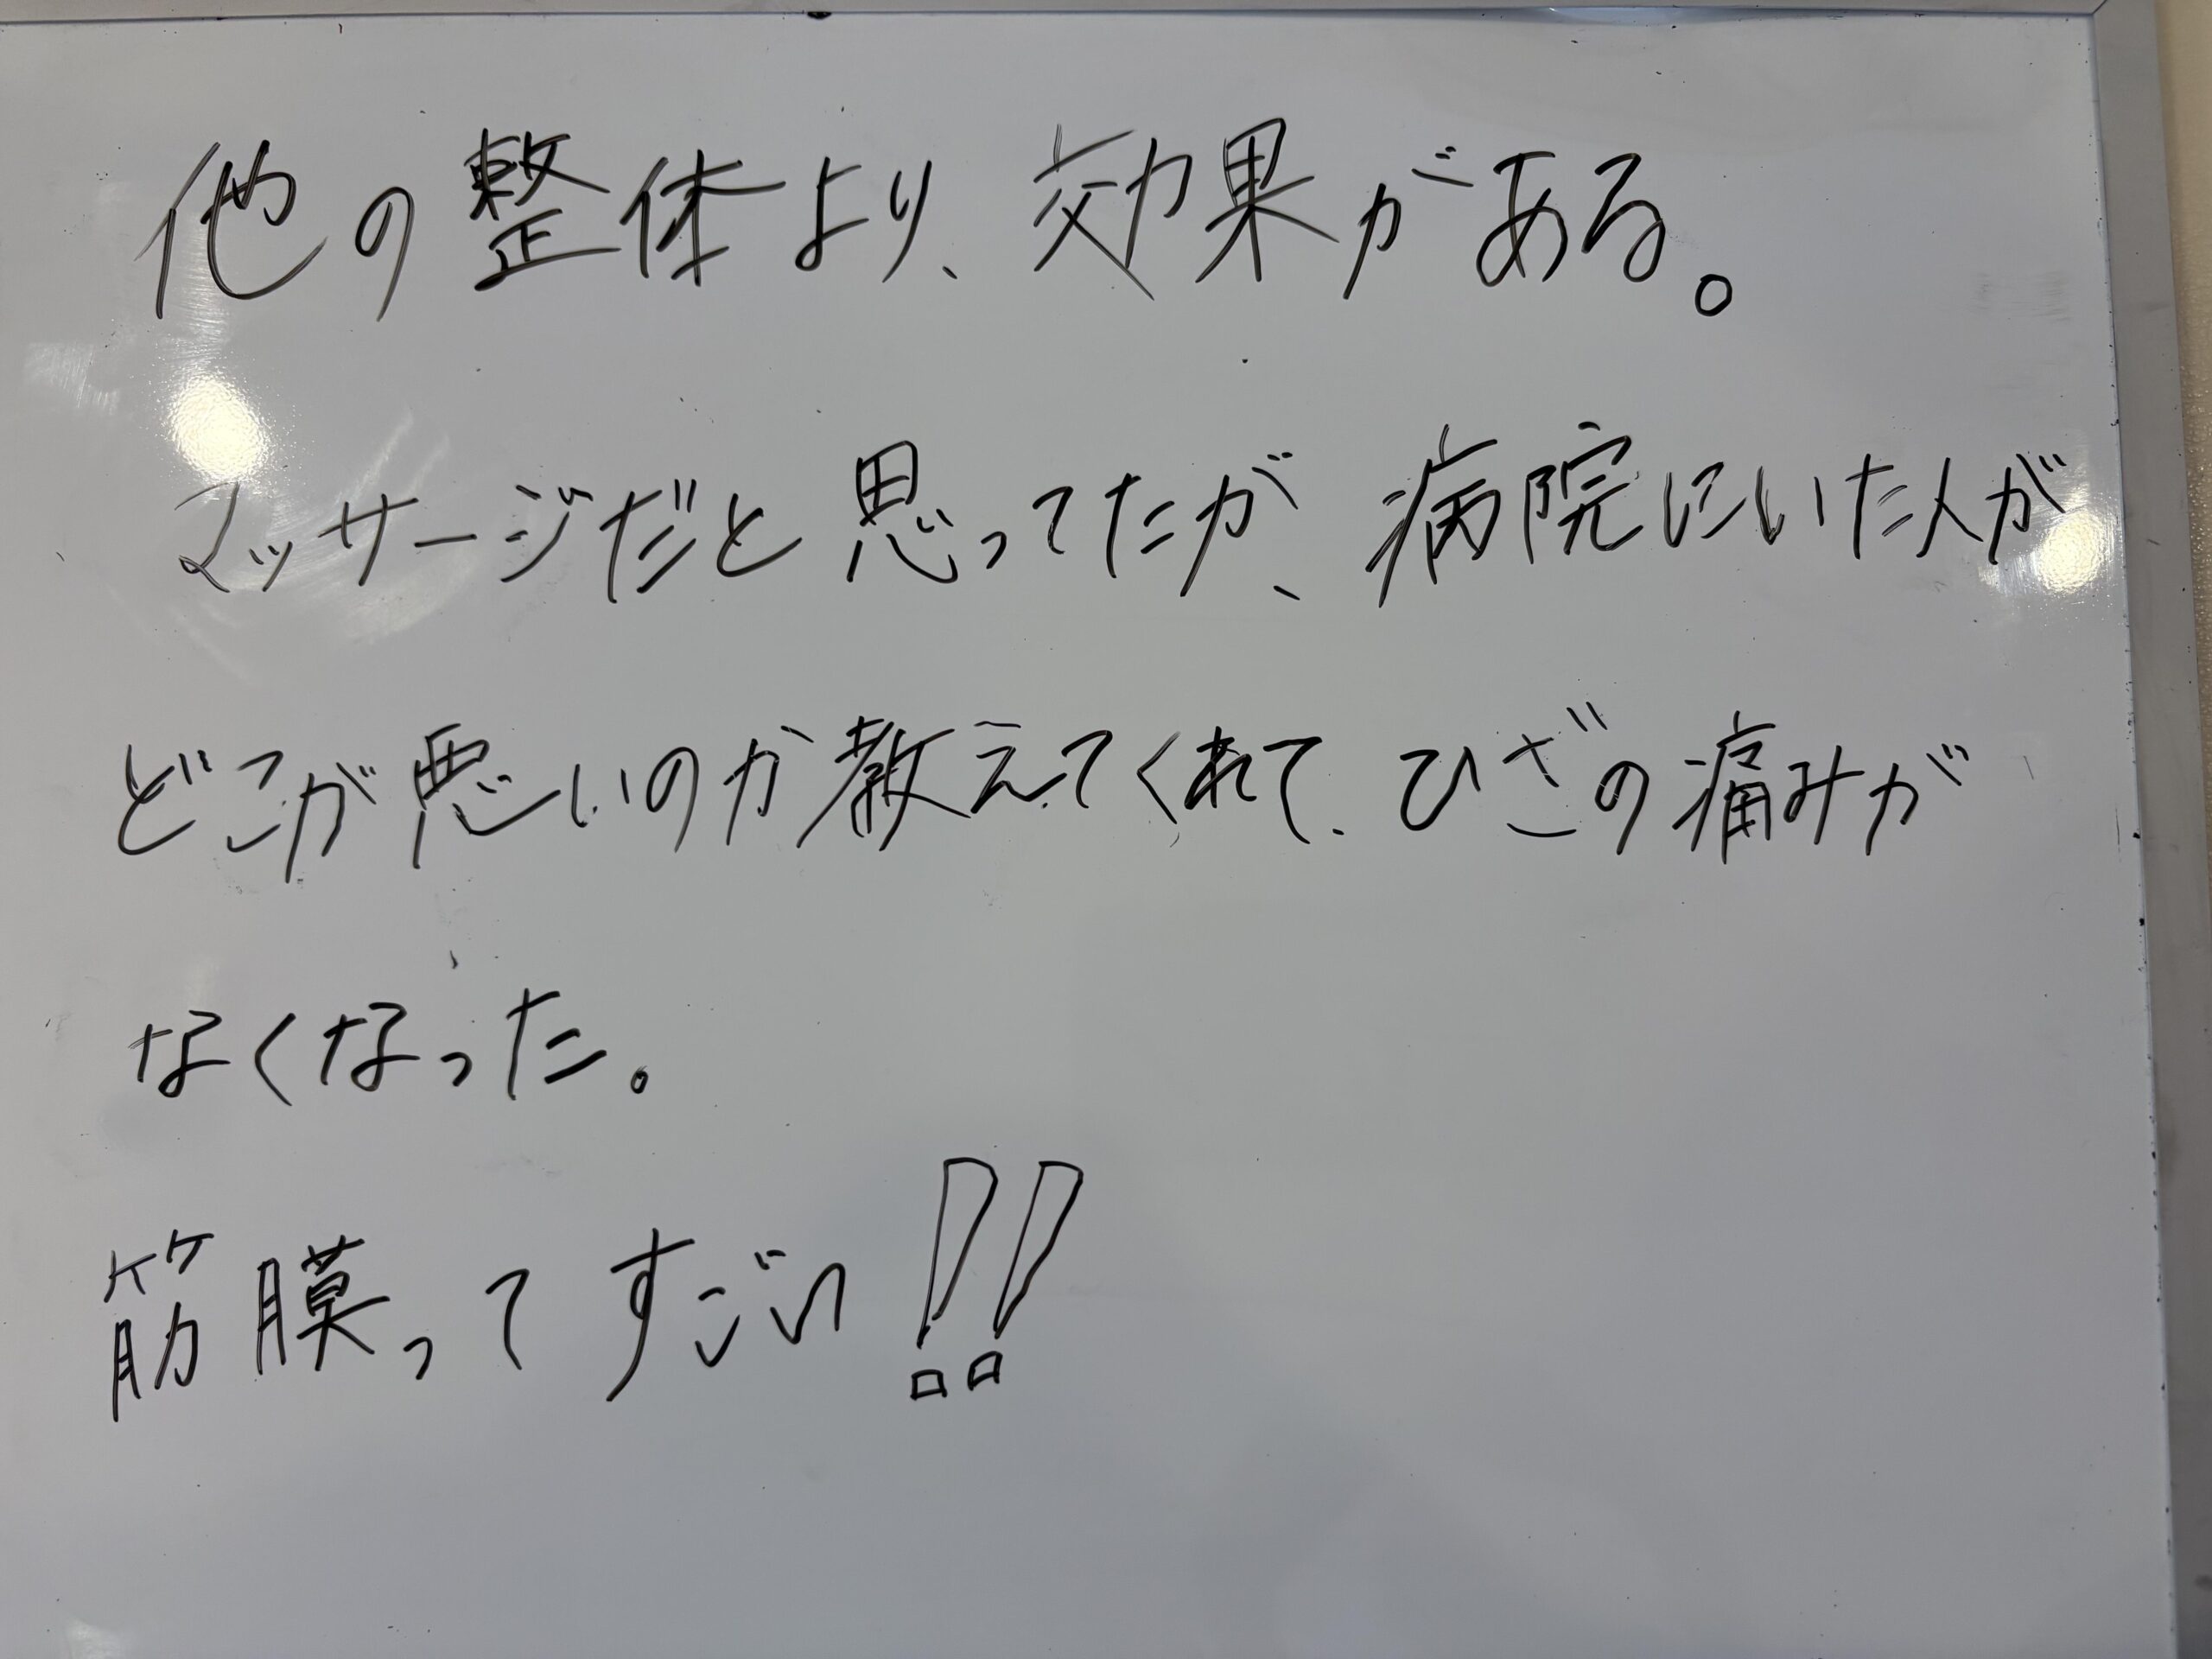 他の整体より、効果がある。
マッサージだと思ってたが、病院にいた人が
どこが悪いのか教えてくれて、ひざの痛みが
なくなった。
筋膜ってすごい!!